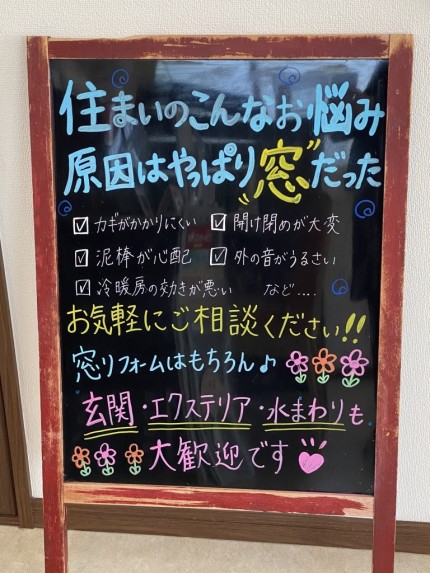 住まいのこんなお悩み
原因はやっぱり"窓"だった
☑ カギがかかりにくい ☑ 開け閉めが大変
☑ 泥棒が心配 ☑ 外の音がうるさい
☑ 冷暖房の効きが悪い など....
お気軽にご相談ください!!
窓リフォームはもちろん♪
玄関・エクステリア・水まわりも
大歓迎です